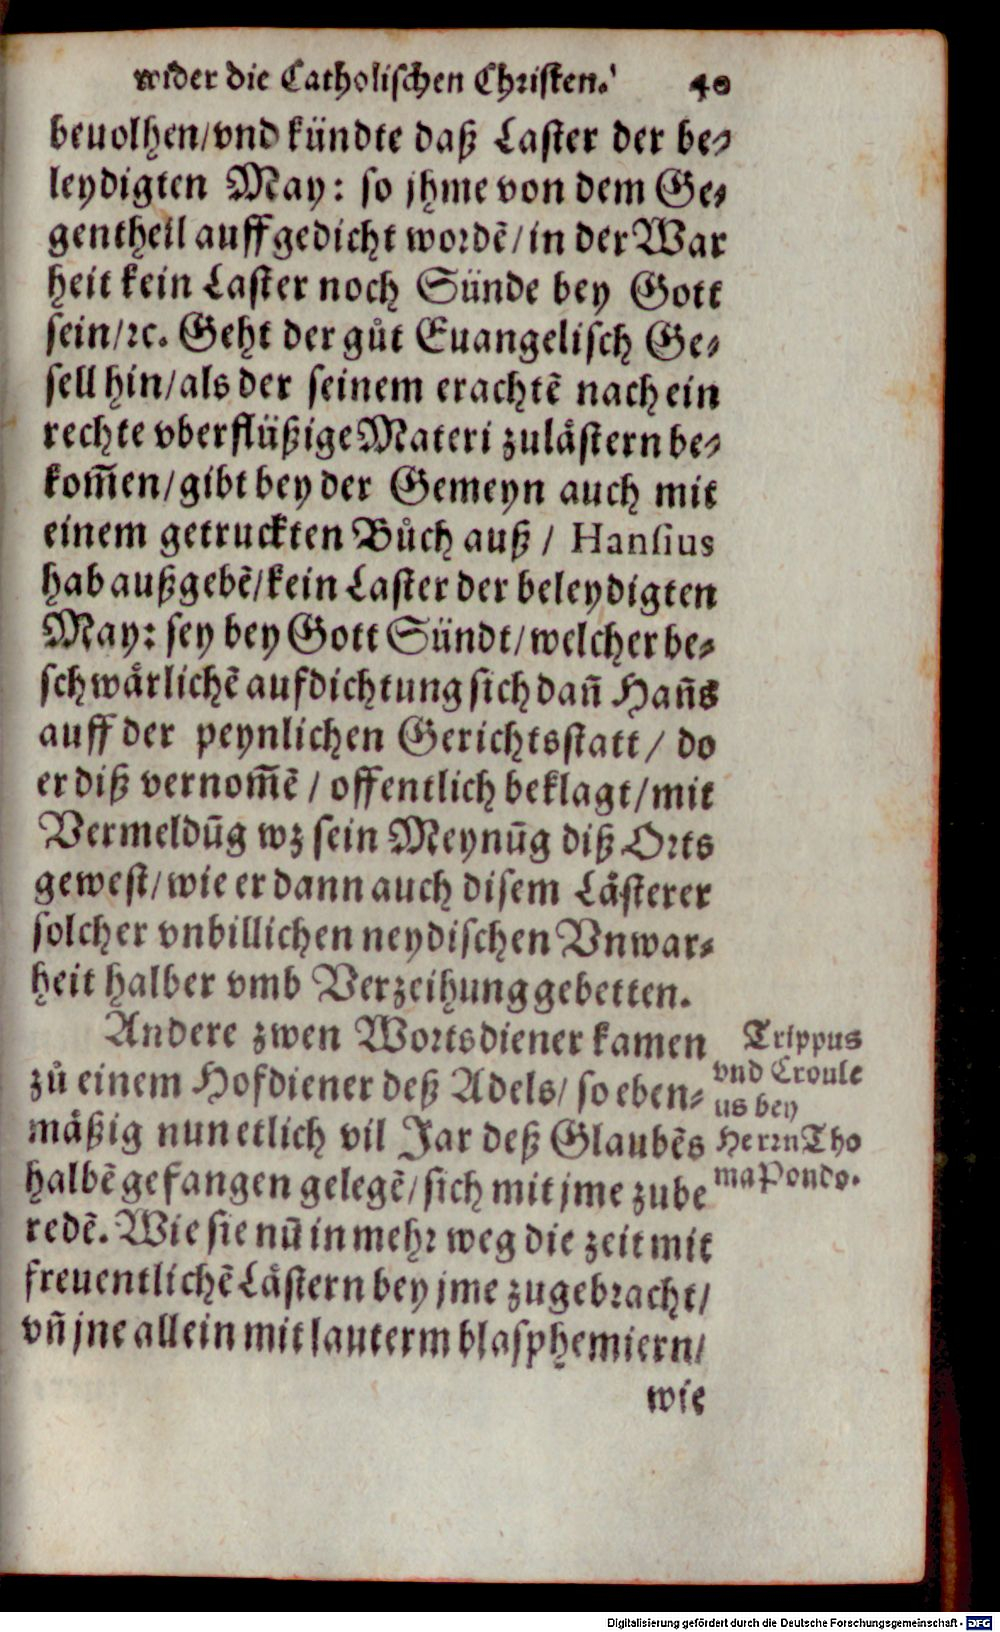 wider die Catholischen Christen. 40
beuolhen/vnd kündte daß Laster der be-
leydigten May: so jhme von dem Ge-
gentheil auffgedicht wordē/in der War
heit kein Laster noch Sünde bey Gott
sein/ꝛc. Geht der gůt Euangelisch Ge-
sell hin/als der seinem erachtē nach ein
rechte vberflüßige Materi zulåstern be-
kom̄en/gibt bey der Gemeyn auch mit
einem getruckten Bůch auß / Hansius
hab außgebē/kein Laster der beleydigten
May: sey bey Gott Sündt/welcher be-
schwårlichē aufdichtung sich dañ Hañs
auff der peynlichen Gerichtsstatt / do
er diß vernom̄ē / offentlich beklagt/mit
Vermeldūg wz sein Meynūg diß Orts
gewest/wie er dann auch disem Låsterer
solcher vnbillichen neydischen Vnwar-
heit halber vmb Verzeihung gebetten.
Andere zwen Wortsdiener kamen
zů einem Hofdiener deß Adels/ so eben-
måßig nun etlich vil Jar deß Glaubēs
halbē gefangen gelegē/sich mit jme zube
redē. Wie sie nū in mehr weg die zeit mit
freuentlichē Låstern bey jme zugebracht/
vñ jne allein mit lauterm blasphemiern/
wie
Trippus
vnd Croule
us bey
Herrn Tho
ma Pondo.
Digitalisierung gefördert durch die Deutsche Forschungsgemeinschaft - DFG